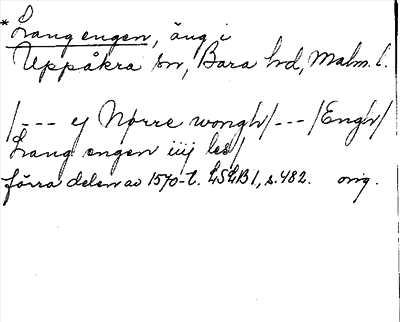 * Lang engen, äng i
Uppåkra sn, Bara hd, Malm. l.
/--- ej Nørre wongh/--- /Engh/
Lang engen iiij les/
förra delen av 1570-t. LSLB I, s. 482. orig.